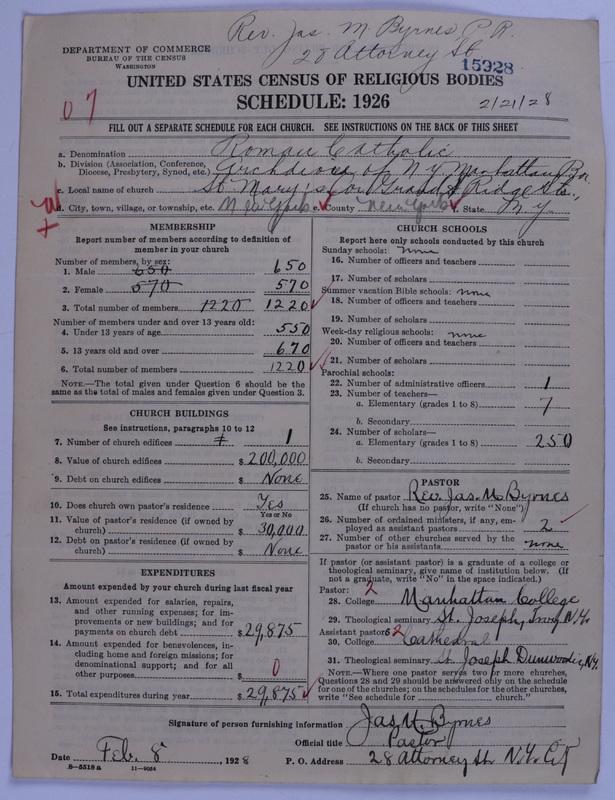 Rev. Jas. M Byrnes P.R.
28 Attorney St
15928
DEPARTMENT OF COMMERCE
BUREAU OF THE CENSUS
WASHINGTON
UNITED STATES CENSUS OF RELIGIOUS BODIES
SCHEDULE: 1926
07
2/21/28
FILL OUT A SEPARATE SCHEDULE FOR EACH CHURCH. SEE INSTRUCTIONS ON THE BACK OF THIS SHEET
a. Denomination Roman Catholic
b. Division (Association, Conference, Diocese, Presbytery, Synod, etc.) Archdiocese of N.Y. Manhattan Bor
c. Local name of church St. Mary's, Grand & Ridge Sts.,
d. City, town, village, or township, etc. New York e. County New York f. State N.Y.
MEMBERSHIP
Report number of members according to definition of
member in your church
Number of members, by sex:
1. Male 650 650
2. Female 570 570
3. Total number of members 1220 1220
Number of members under and over 13 years old:
4. Under 13 years of age 550
5. 13 years old and over 670
6. Total number of members 1220
NOTE.—The total given under Question 6 should be the
same as the total of males and females given under Question 3.
CHURCH BUILDINGS
See instructions, paragraphs 10 to 12
7. Number of church edifices 1
8. Value of church edifices $200,000
9. Debt on church edifices $ None
10. Does church own pastor's residence Yes
Yes or No
11. Value of pastor's residence (if owned by
church) $30,000
12. Debt on pastor's residence (if owned by
church) $ None
EXPENDITURES
Amount expended by your church during last fiscal year
13. Amount expended for salaries, repairs,
and other running expenses; for im-
provements or new buildings; and for
payments on church debt $29,875
14. Amount expended for benevolences, in-
cluding home and foreign missions; for
denominational support; and for all
other purposes $ 0
15. Total expenditures during year $29,875
CHURCH SCHOOLS
Report here only schools conducted by this church
Sunday schools: none
16. Number of officers and teachers
17. Number of scholars
Summer vacation Bible schools: none
18. Number of officers and teachers
19. Number of scholars
Week-day religious schools: none
20. Number of officers and teachers
21. Number of scholars
Parochial schools:
22. Number of administrative officers 1
23. Number of teachers—
a. Elementary (grades 1 to 8) 7
b. Secondary
24. Number of scholars—
a. Elementary (grades 1 to 8) 250
b. Secondary
PASTOR
25. Name of pastor Rev. Jas. M. Byrnes
(If church has no pastor, write "None")
26. Number of ordained ministers, if any, em-
ployed as assistant pastors 2
27. Number of other churches served by the
pastor or his assistants none
If pastor (or assistant pastor) is a graduate of a college or
theological seminary, give name of institution below. (If
not a graduate, write "No" in the space indicated.)
Pastor: 2
28. College Manhattan College
29. Theological seminary St. Joseph, Troy N.Y.
Assistant pastors 2
30. College Cathedral
31. Theological seminary St. Joseph Dunwoodie, N.Y.
NOTE.—Where one pastor serves two or more churches,
Questions 28 and 29 should be answered only on the schedule
for one of the churches; on the schedules for the other churches,
write "See schedule for church."
Signature of person furnishing information Jas. M. Byrnes
Official title Pastor
Date Feb. 8, 1928 P. O. Address 28 Attorney St. N.Y. City
8—5518a 11—9054